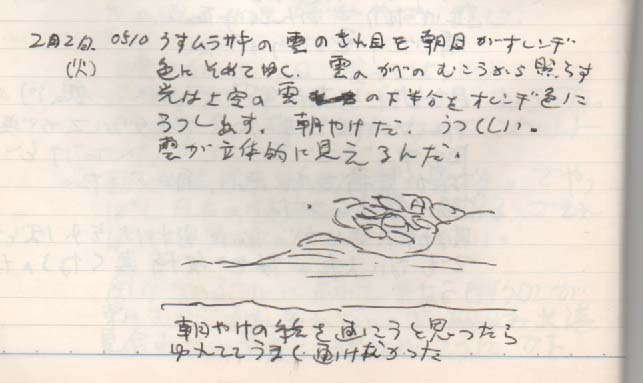 2月2日 0510 うすムラサキの雲のきれ目を朝日がオレンヂ
(火) 色にそめてゆく. 雲のかべのむこうから照らす
光は上空の雲の下半分をオレンヂ色に
うつし出す. 朝やけだ. うつくしい.
雲が立体的に見えるんだ.
朝やけの絵を画こうと思ったら
ゆれててうまく画けなかった